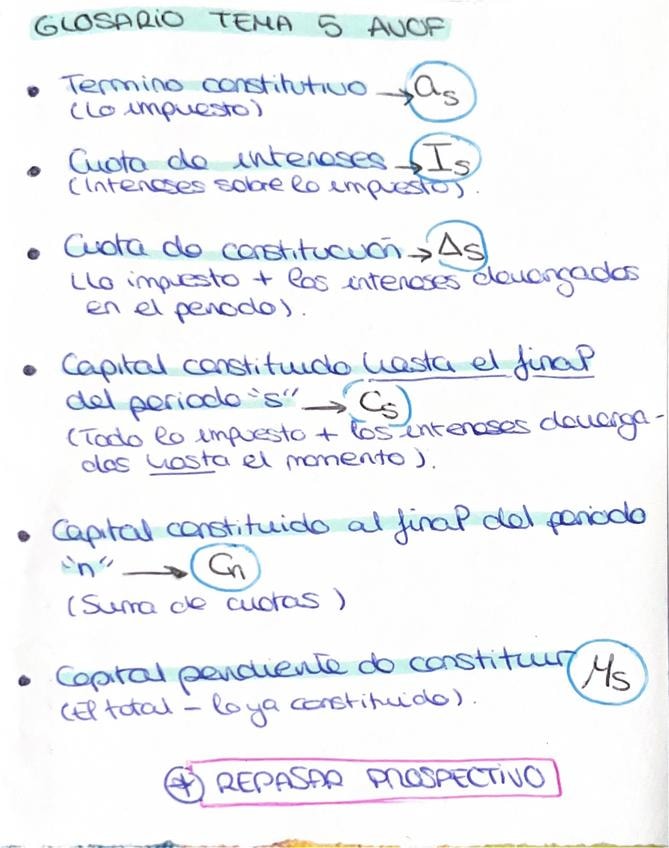 GLOSARIO TEMA 5 AVOF
• Termino constitutivo → as
(Lo impuesto)
• Cuota de intereses → Is
(Intereses sobre lo impuesto).
• Cuota de constitución → Δs
(Lo impuesto + los intereses devengados
en el periodo).
• Capital constituido hasta el final
del periodo "s" → Cs
(Todo lo impuesto + los intereses devenga-
dos hasta el momento).
• Capital constituido al final del periodo
"n" → Cn
(Suma de cuotas)
• Capital pendiente de constituir Ms
(El total - lo ya constituido).
* REPASAR PROSPECTIVO